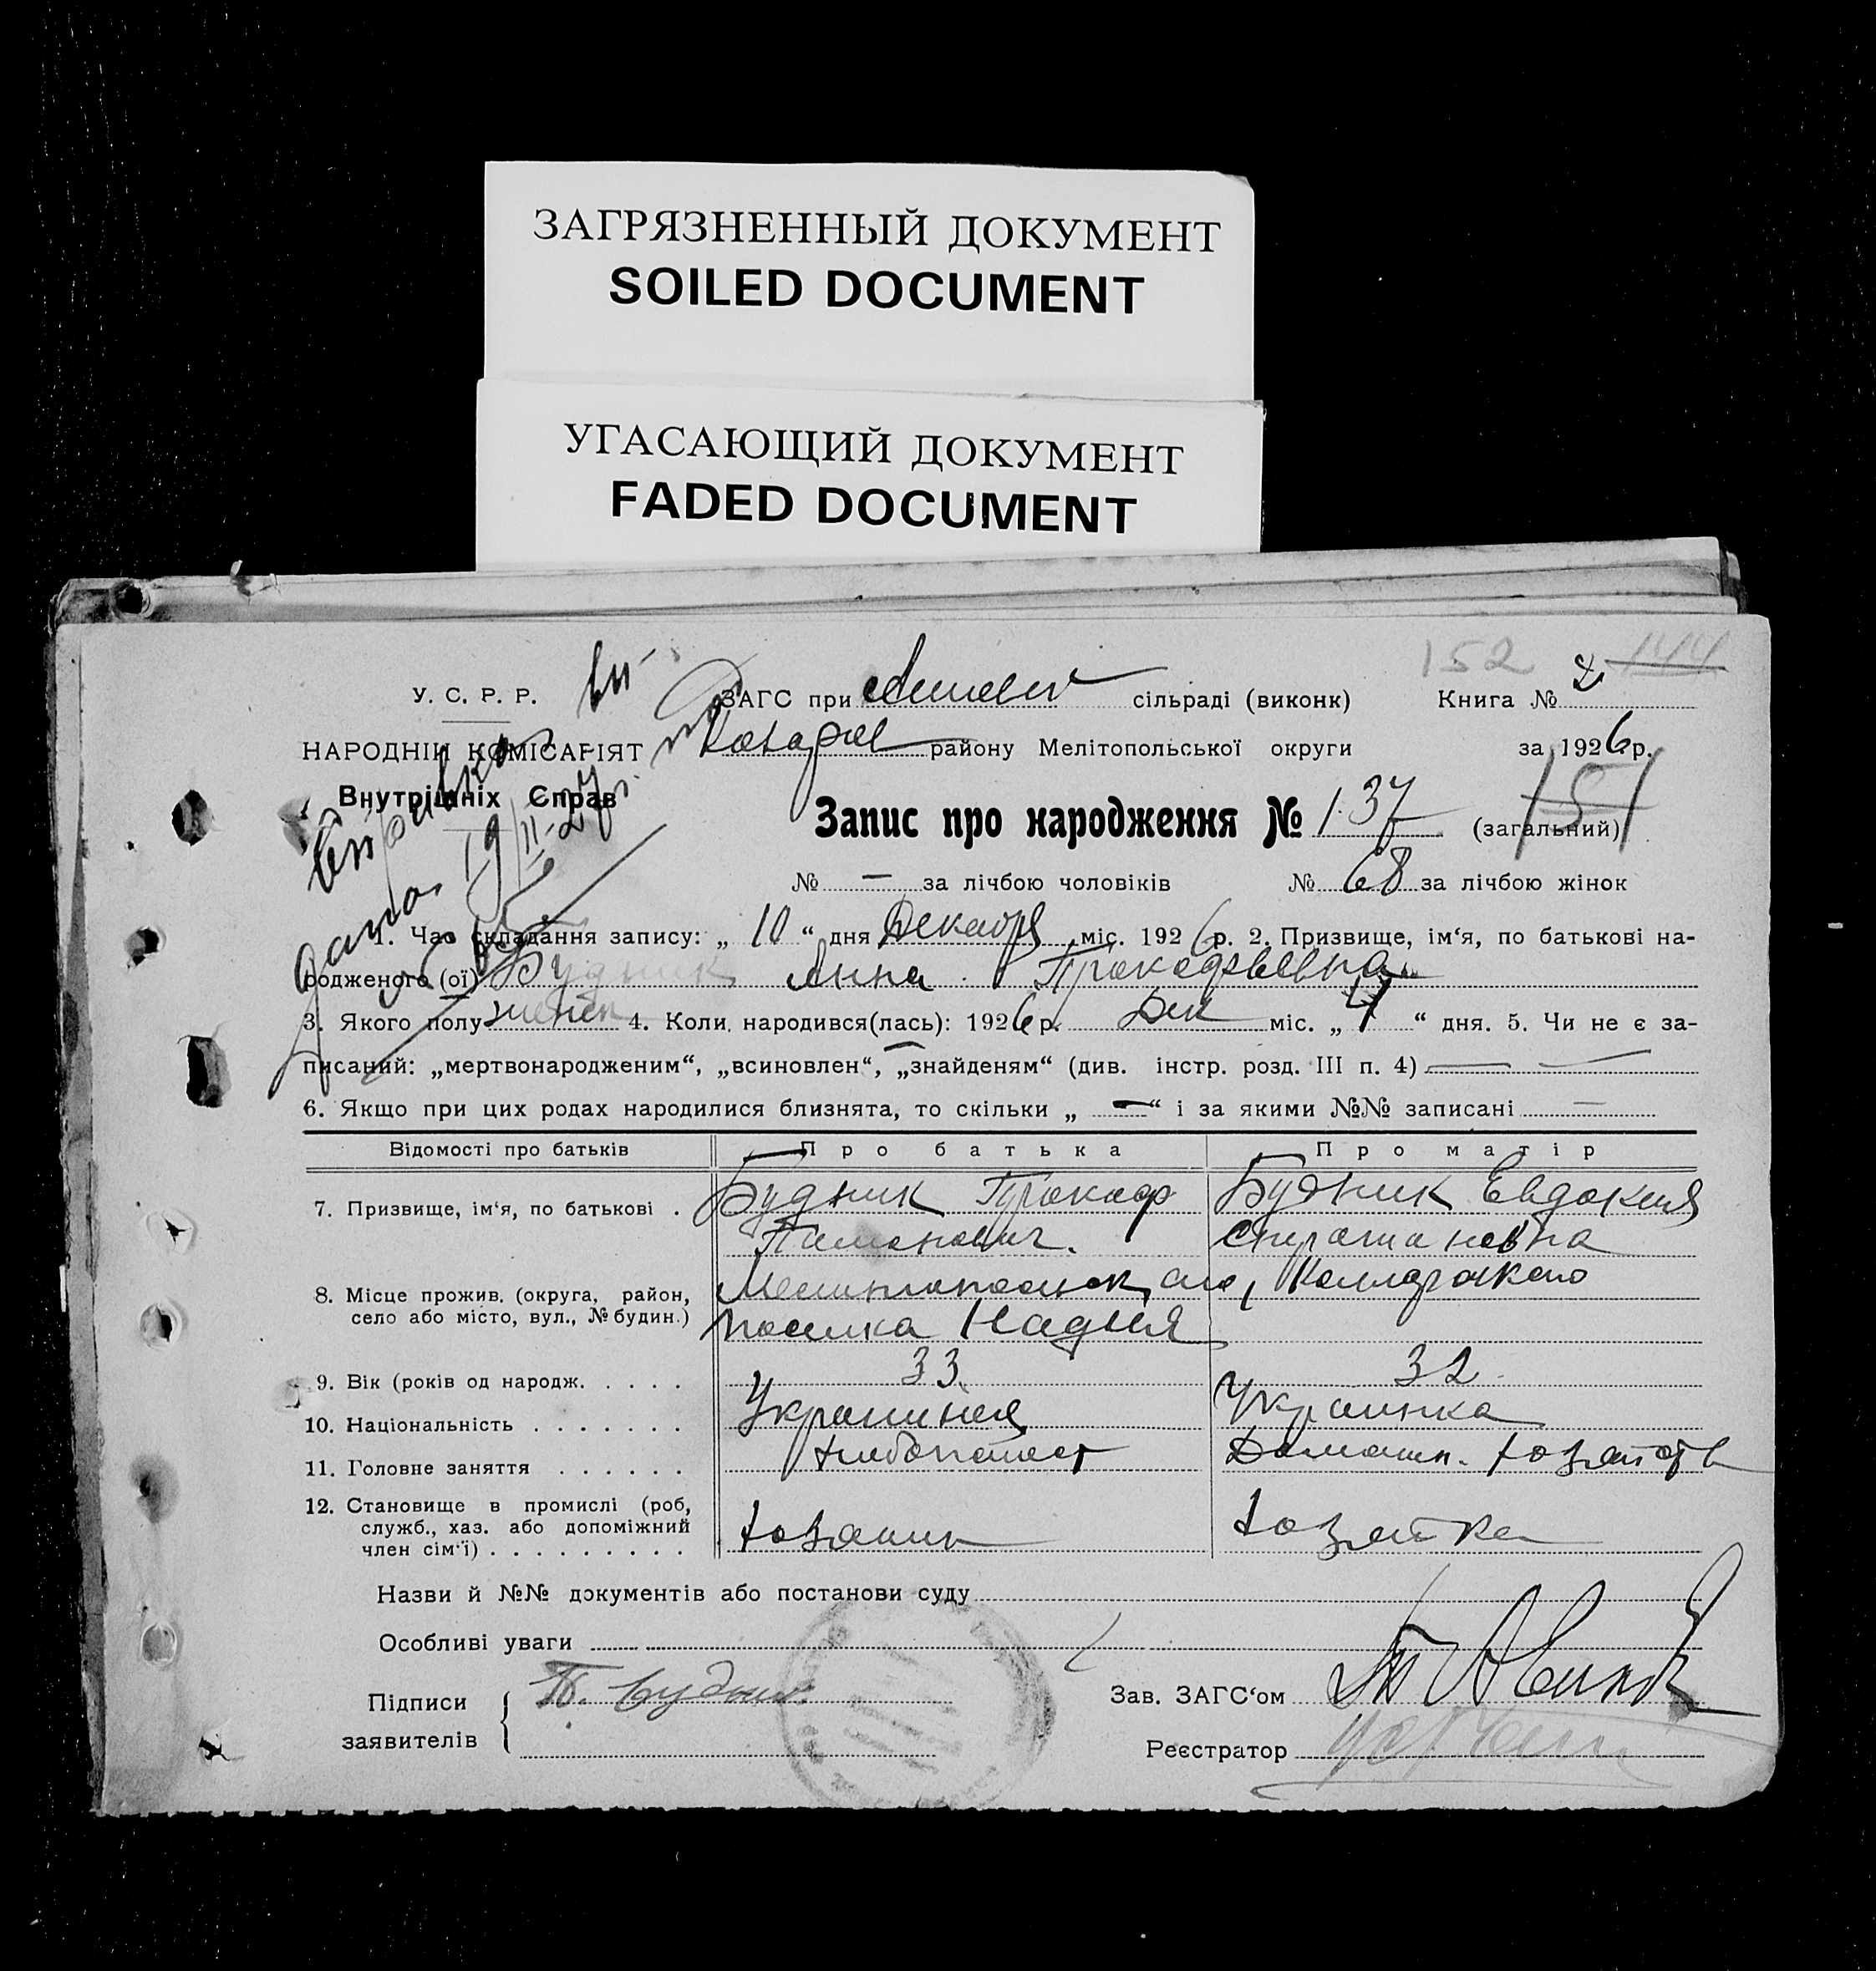 ЗАГРЯЗНЕННЫЙ ДОКУМЕНТ
SOILED DOCUMENT
УГАСАЮЩИЙ ДОКУМЕНТ
FADED DOCUMENT
152 144
У. С. Р. Р. ЗАГС при сільраді (виконк) Книга № 2
НАРОДНІЙ КОМІСАРІЯТ району Мелітопольської округи за 1926 р.
Внутрішніх Справ
151
Запис про народження № 137 (загальний)
Справка
дана 19/II-27 г.
№ — за лічбою чоловіків № 68 за лічбою жінок
1. Час складання запису: „ 10 “ дня Декабря міс. 1926 р. 2. Призвище, ім‘я, по батькові на-
родженого (ої) Будник Анна Прокофьевна
3. Якого полу женск 4. Коли народився(лась): 1926 р. Дек міс. „ 4 “ дня. 5. Чи не є за-
писаний: „мертвонародженим“, „всиновлен“, „знайденям“ (див. інстр. розд. III п. 4) —
6. Якщо при цих родах народилися близнята, то скільки „ — “ і за якими №№ записані —
Відомості про батьків Про батька Про матір
7. Призвище, ім‘я, по батькові . Будник Прокоф Будник Евдокия
8. Місце прожив. (округа, район,
село або місто, вул., № будин.) поселка Надия
9. Вік (років од народж. . . . . 33 32
10. Національність . . . . . . . Украинец Украинка
11. Головне заняття . . . . . . Хлебопашест Домашн. хозяйств
12. Становище в промислі (роб,
служб., хаз. або допоміжний
член сім‘ї) . . . . . . . . . Хозяин Хозяйка
Назви й №№ документів або постанови суду
Особливі уваги
Підписи П. Будник Зав. ЗАГС‘ом
заявителів Реєстратор